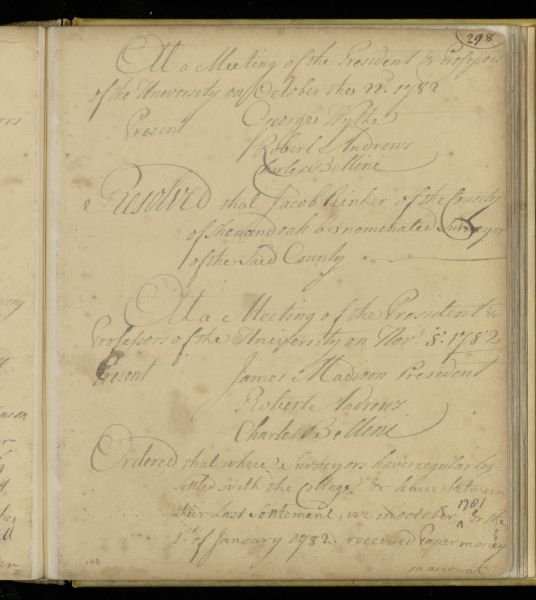 298
At a Meeting of the President & Professors
of the University on October the 22d. 1782
Present George Wythe
Robert Andrews
Charles Bellini
Resolved that Jacob Rinker of the County
of Shenandoah be nominated Surveyor
of the Said County
At a Meeting of the President &
Professors of the University on Novr 8: 1782
Present James Madison President
Robert Andrews
Charles Bellini
Ordered that where Surveyors have regularly
settled with the College & have between
their last settlement, viz in october 1781 & the
1st of January 1782. received Paper money
on account
148